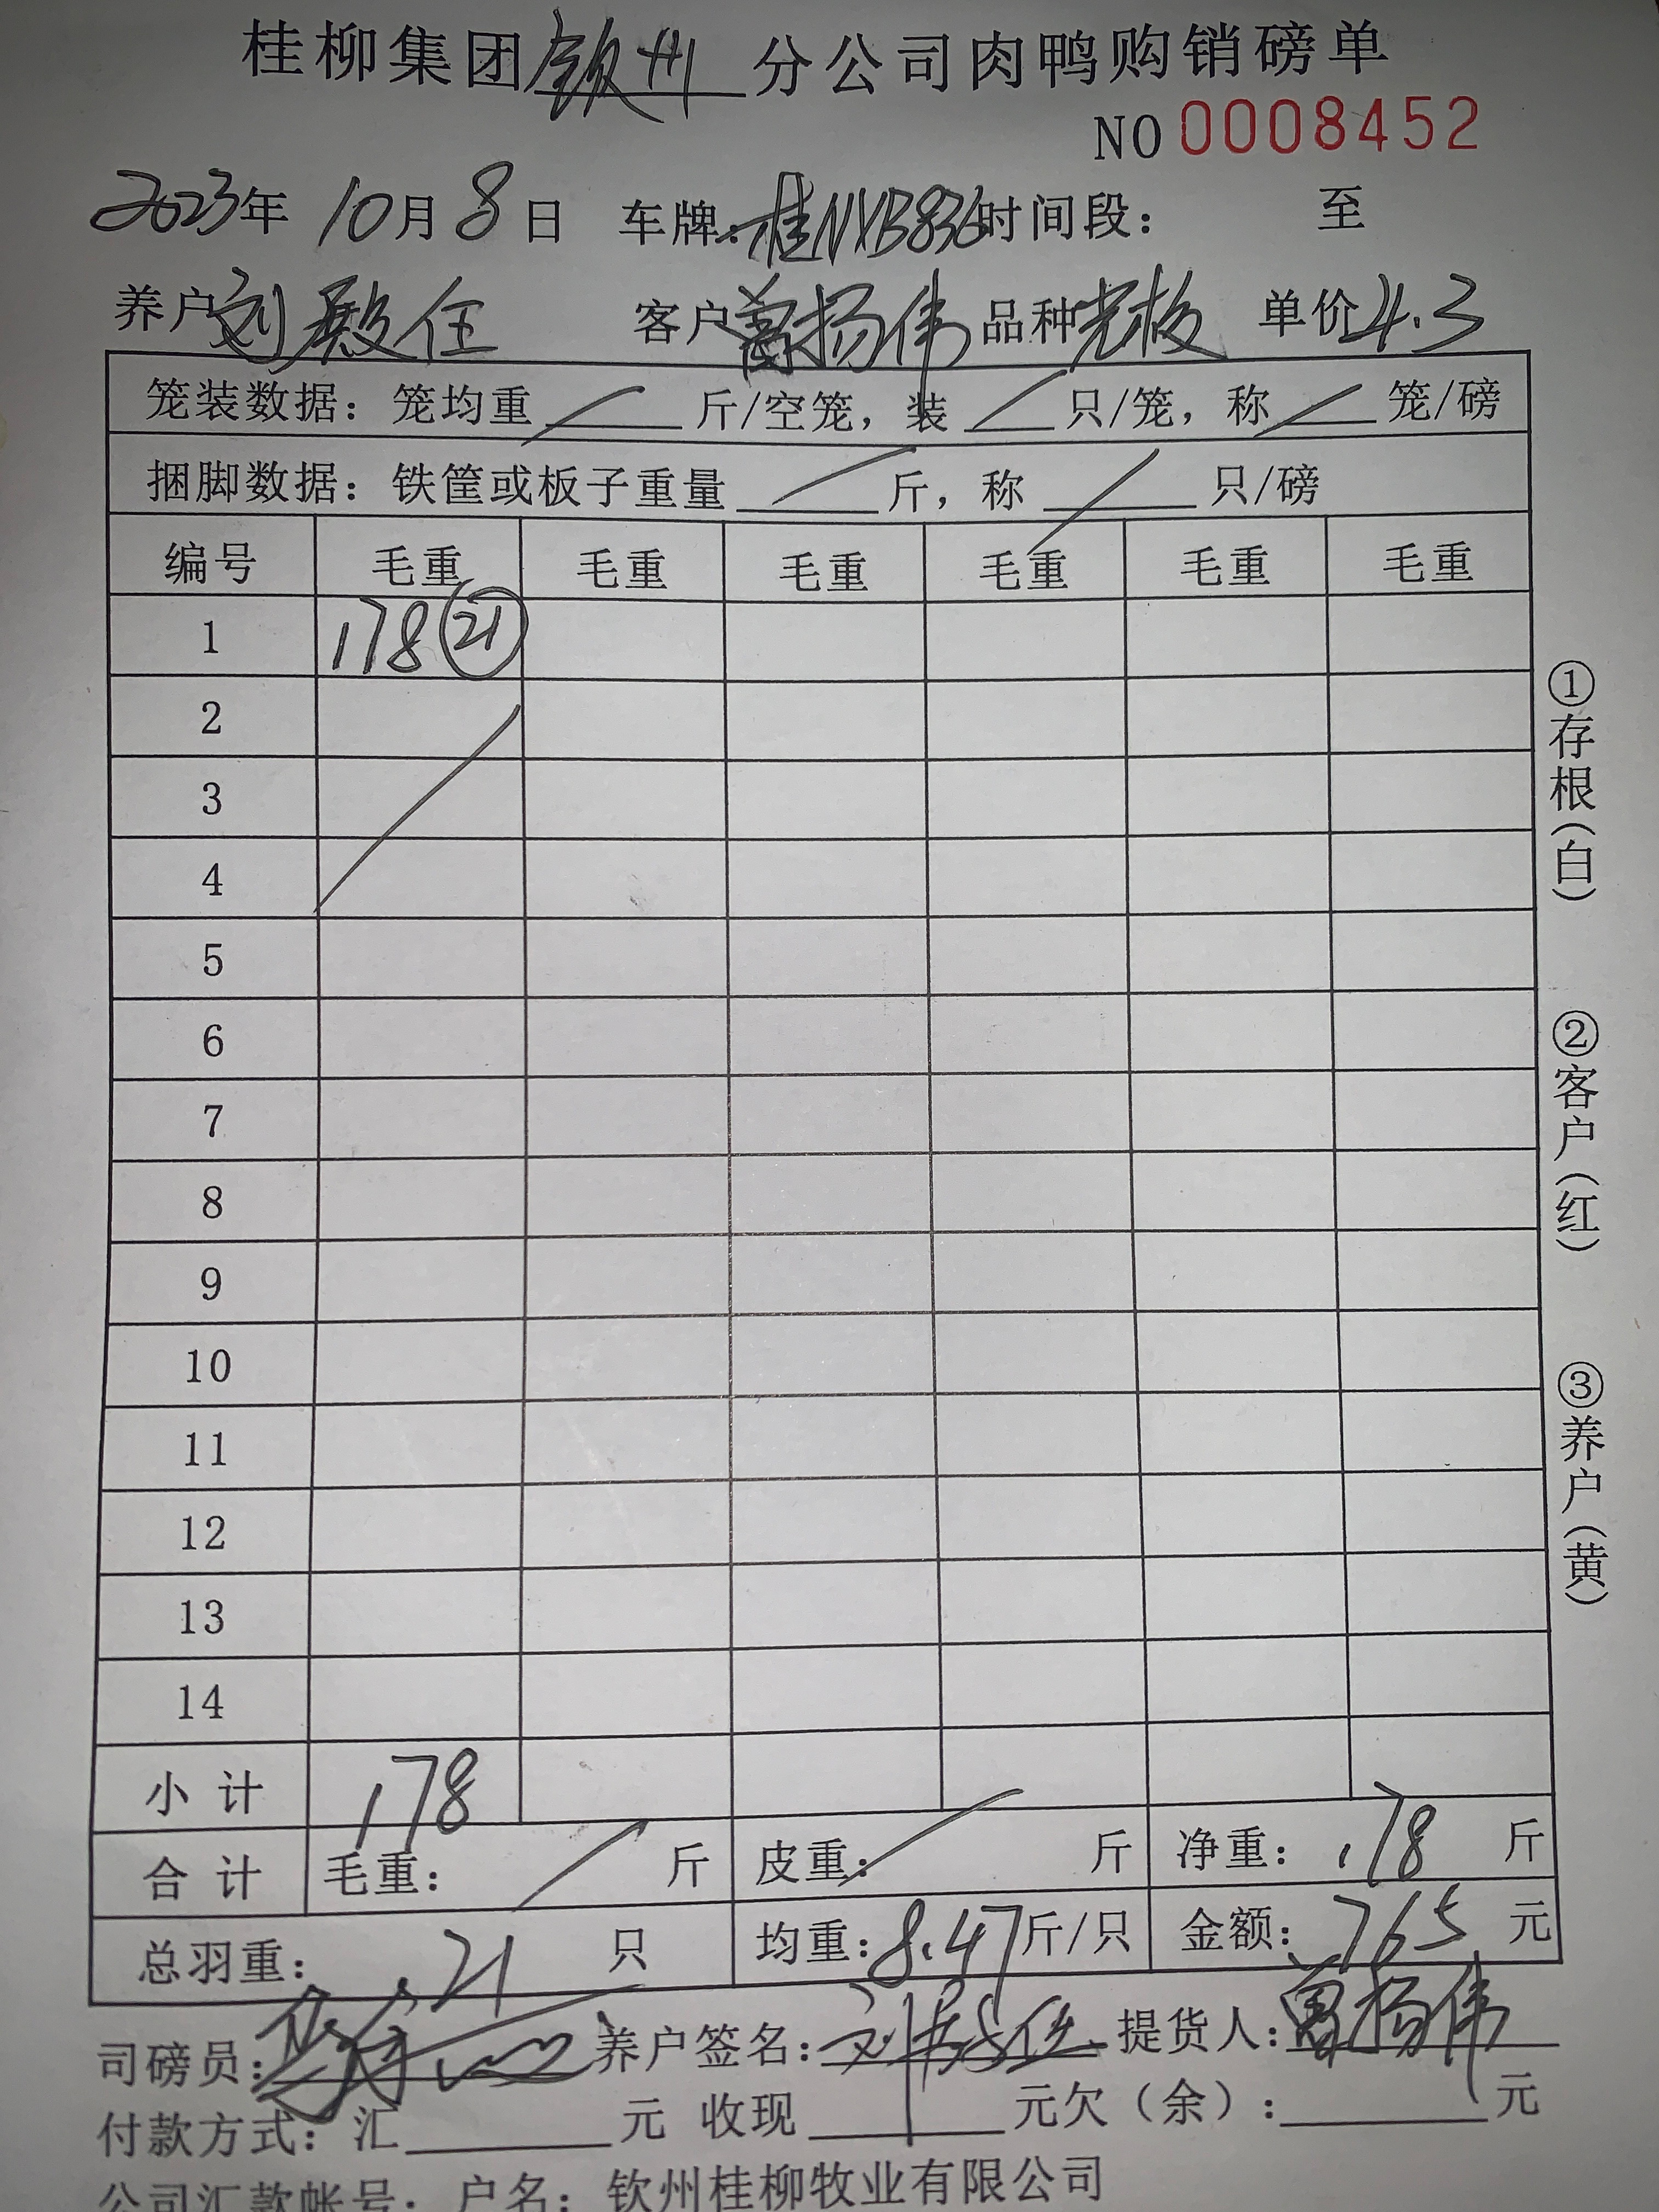 桂柳集团钦州分公司肉鸭购销磅单
NO 0008452
2023年 10月 8日 车牌:桂NXB836时间段: 至
养户刘殿任 客户曾扬伟 品种光板 单价4.3
笼装数据:笼均重 斤/空笼,装 只/笼,称 笼/磅
捆脚数据:铁筐或板子重量 斤,称 只/磅
编号 毛重 毛重 毛重 毛重 毛重 毛重
1 178 21
2
3
4
5
6
7
8
9
10
11
12
13
14
小计 178
合计 毛重: 斤 皮重: 斤 净重:178 斤
总羽重:21 只 均重:8.47斤/只 金额:765 元
司磅员: 养户签名:刘殿任 提货人:曾扬伟
付款方式:汇 元 收现 元欠(余): 元
公司汇款帐号:户名:钦州桂柳牧业有限公司
①存根(白)
②客户(红)
③养户(黄)